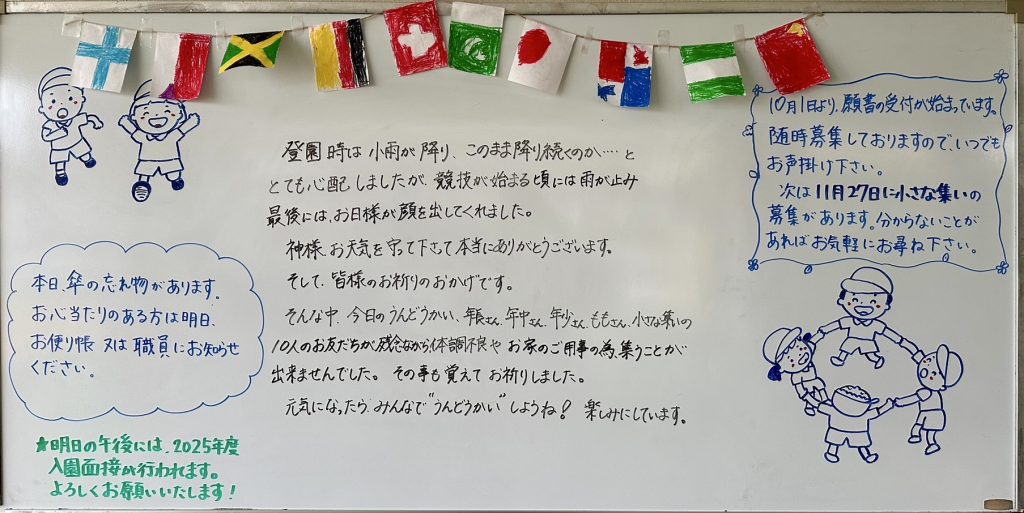 登園時は小雨が降り、このまま降り続くのか‥‥と
とても心配しましたが、競技が始まる頃には雨が止み
最後には、お日様が顔を出してくれました。
神様、お天気を守って下さって本当にありがとうございます。
そして、皆様のお祈りのおかげです。
そんな中、今日のうんどうかい、年長さん、年中さん、年少さん、ももさん、小さな集いの
10人のお友だちが、残念ながら、体調不良や お家のご用事の為、集うことが
出来ませんでした。 その事も覚えてお祈りしました。
元気になったら、みんなで"うんどうかい"しようね! 楽しみにしています。
本日、傘の忘れ物があります。
お心当たりのある方は明日、
お便り帳 又は 職員にお知らせ
ください。
★明日の午後には、2025年度
入園面接が行われます。
よろしくお願いいたします!
10月1日より、願書の受付が始まっています。
随時募集しておりますので、いつでも
お声掛け下さい。
次は11月27日に小さな集いの
募集があります。分からないことが
あればお気軽にお尋ね下さい。